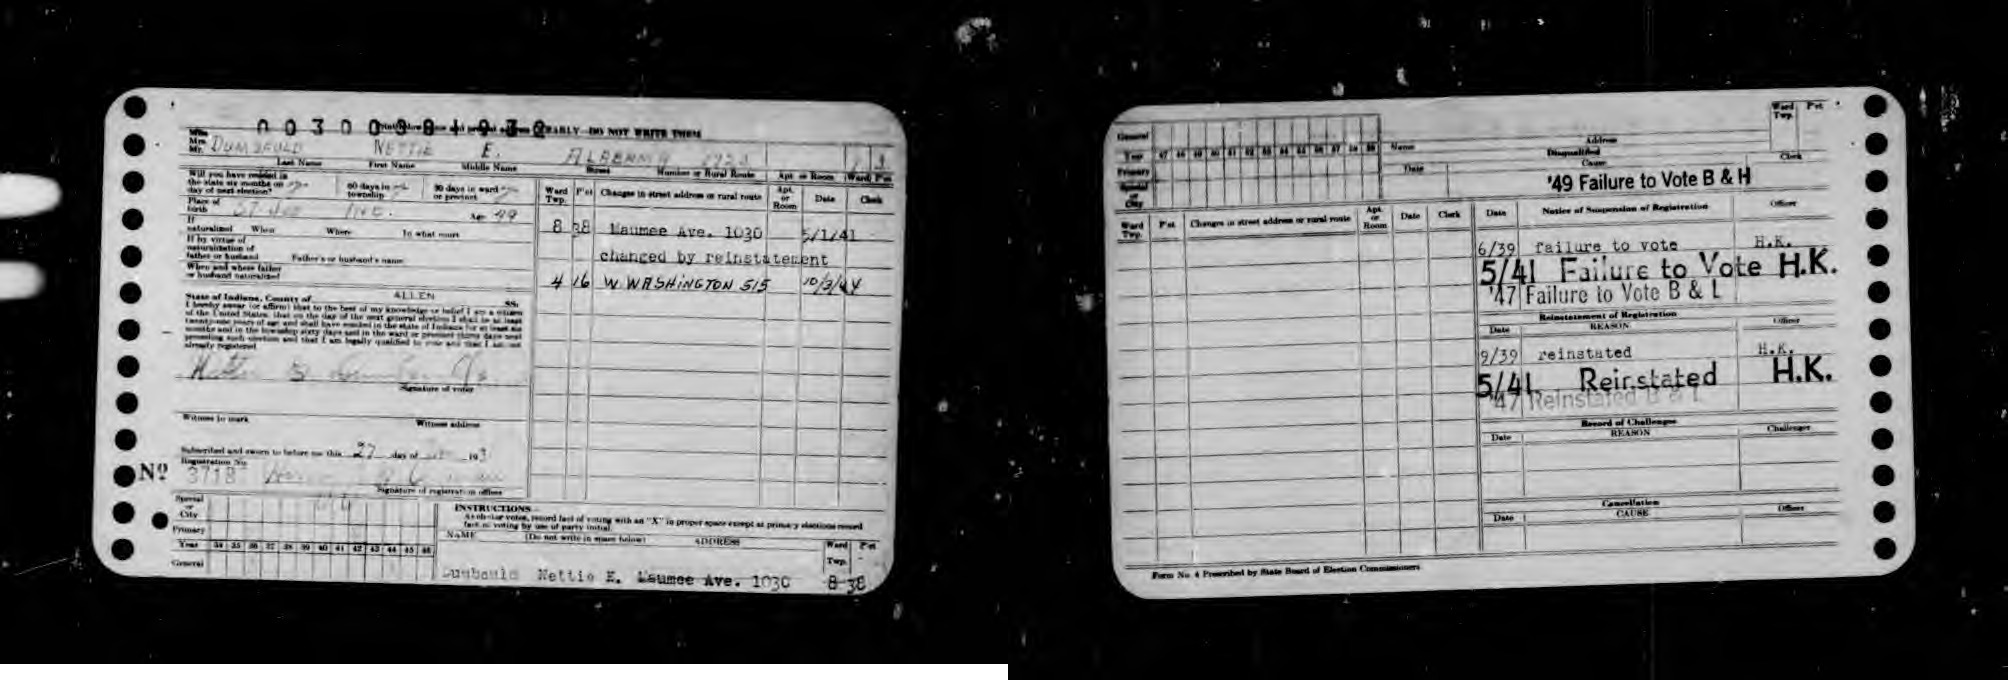 Print below name and present address CLEARLY—DO NOT WRITE THEM
Miss
Mrs.
Mr.
NETTIE E. ALABAMA
Last Name First Name Middle Name Street Number or Rural Route Apt. or Room Ward P'ct
Will you have resided in
the state six months on
day of next election?
60 days in
township
30 days in ward
or precinct
Place of
birth IND. Age 49
If
naturalized When Where In what court
If by virtue of
naturalization of
father or husband Father's or husband's name
When and where father
or husband naturalized
State of Indiana, County of ALLEN SS:
I hereby swear (or affirm) that to the best of my knowledge or belief I am a citizen
of the United States, that on the day of the next general election I shall be at least
twenty-one years of age and shall have resided in the state of Indiana for at least six
months and in the township sixty days and in the ward or precinct thirty days next
preceding such election and that I am legally qualified to vote and that I am not
already registered.
Signature of voter
Witness to mark Witness address
Subscribed and sworn to before me this 27 day of 193
Registration No.
Nº 3718
Signature of registration officer
Ward
Twp. P'ct Changes in street address or rural route Apt.
or
Room Date Clerk
8 38 Maumee Ave. 1030 5/1/41
changed by reinstatement
4 16 W. WASHINGTON 515 10/3/44
Special
or
City
Primary
Year 34 35 36 37 38 39 40 41 42 43 44 45 46
General
INSTRUCTIONS
As elector votes, record fact of voting with an "X" in proper space except at primary elections record
fact of voting by use of party initial.
NAME (Do not write in space below) ADDRESS Ward
Twp. P'ct
Nettie E. Maumee Ave. 1030 8-38
General
Year 47 48 49 50 51 52 53 54 55 56 57 58 59
Primary
Special
or
City
Ward
Twp. P'ct
Name Address
Disqualified
Date Cause Clerk
'49 Failure to Vote B & H
Ward
Twp. P'ct Changes in street address or rural route Apt.
or
Room Date Clerk
Date Notice of Suspension of Registration Officer
6/39 failure to vote H.K.
5/41 Failure to Vote H.K.
'47 Failure to Vote B & L
Reinstatement of Registration
Date REASON Officer
9/39 reinstated H.K.
5/41 Reinstated H.K.
'47 Reinstated B & L
Record of Challenges
Date REASON Challenger
Cancellation
Date CAUSE Officer
Form No. 4 Prescribed by State Board of Election Commissioners